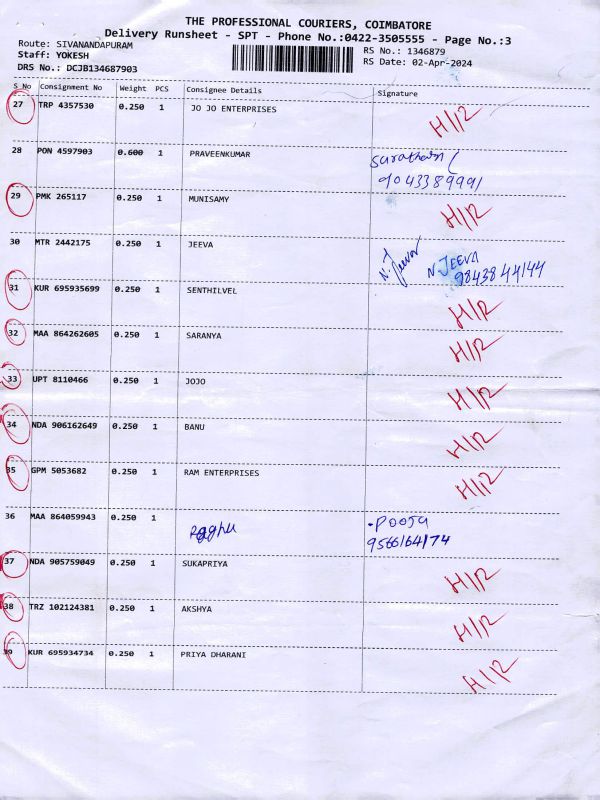 THE PROFESSIONAL COURIERS, COIMBATORE
Delivery Runsheet - SPT - Phone No.:0422-3505555 - Page No.:3
Route: SIVANANDAPURAM
Staff: YOKESH
DRS No.: DCJB134687903
RS No.: 1346879
RS Date: 02-Apr-2024
S No Consignment No Weight PCS Consignee Details Signature
27 TRP 4357530 0.250 1 JO JO ENTERPRISES H/R
28 PON 4597903 0.600 1 PRAVEENKUMAR
9043389991
29 PMK 265117 0.250 1 MUNISAMY H/R
30 MTR 2442175 0.250 1 JEEVA N. Jeeva N. JEEVA
9843844144
31 KUR 695935699 0.250 1 SENTHILVEL H/R
32 MAA 864262605 0.250 1 SARANYA H/R
33 UPT 8110466 0.250 1 JOJO H/R
34 NDA 906162649 0.250 1 BANU H/R
35 GPM 5053682 0.250 1 RAM ENTERPRISES H/R
36 MAA 864059943 0.250 1 Raghu Pooja
9566164174
37 NDA 905759049 0.250 1 SUKAPRIYA H/R
38 TRZ 102124381 0.250 1 AKSHYA H/R
39 KUR 695934734 0.250 1 PRIYA DHARANI H/R